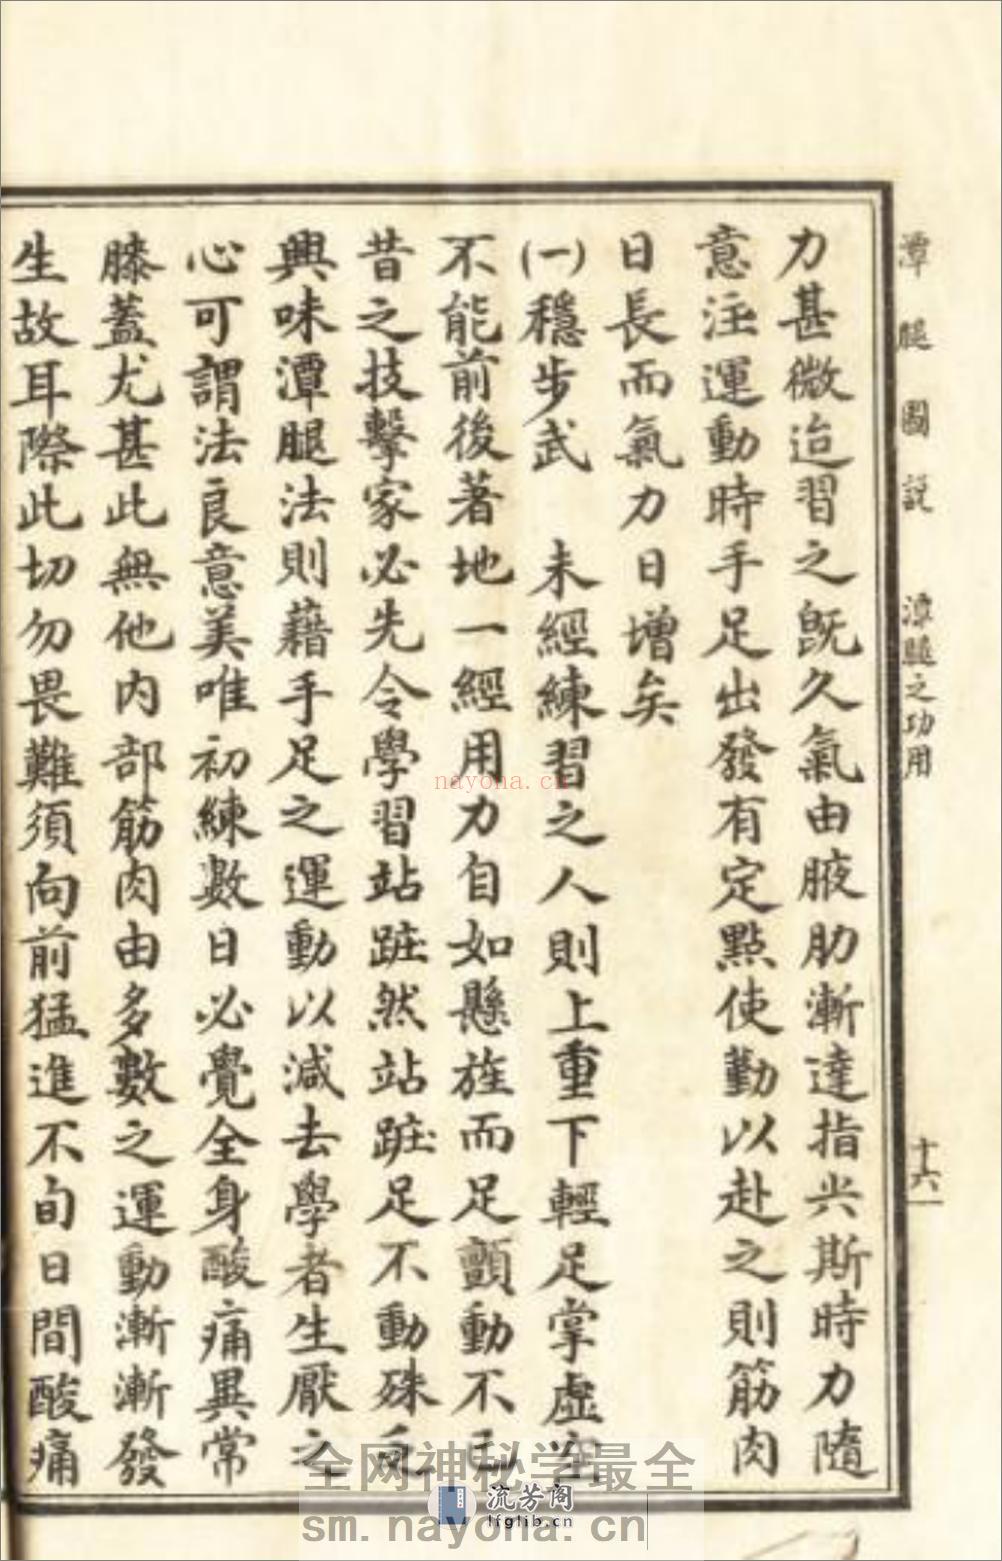 潭腿圖説 潭腿之功用 十六
力甚微迨習之旣久氣由腋肋漸達指尖斯時力隨
意注運動時手足出發有定點使勤以赴之則筋肉
日長而氣力日增矣
(一)穩步武 未經練習之人則上重下輕足掌虛空
不能前後著地一經用力自如懸旌而足顫動不已
昔之技擊家必先令學習站踮然站踮足不動殊乏
興味潭腿法則藉手足之運動以減去學者生厭之
心可謂法良意美唯初練數日必覺全身酸痛異常
膝蓋尤甚此無他內部筋肉由多數之運動漸漸發
生故耳際此切勿畏難須向前猛進不旬日間酸痛
nayona.cn
全网神秘学最全
流芳阁
lfglib.cn
sm.nayona.cn